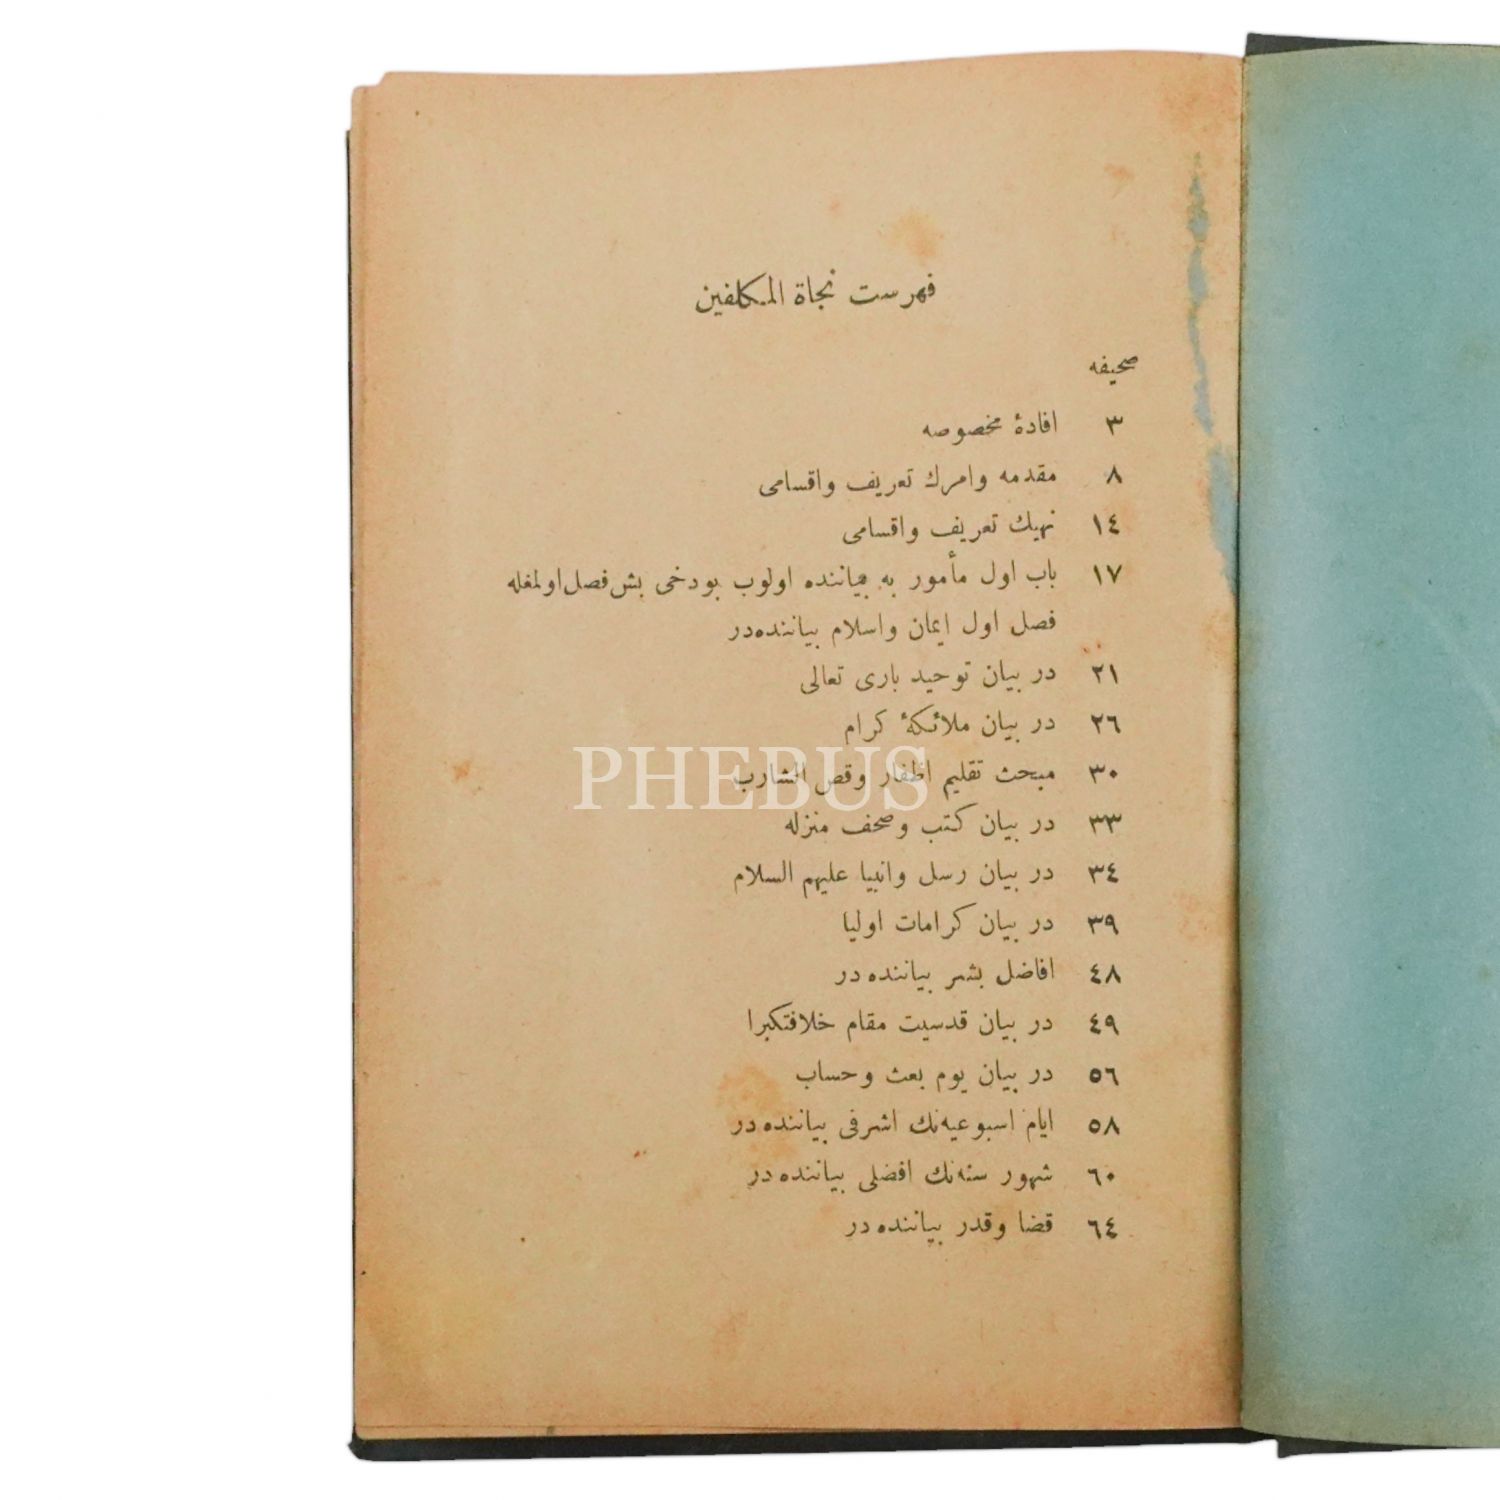 فهرست نجاة المكلفين
صحيفه
٣ افادۀ مخصوصه
٨ مقدمه وامرك تعريف واقسامى
١٤ نهيك تعريف واقسامى
١٧ باب اول مأمور به بياننده اولوب بودخى بش فصل اولمغله
فصل اول ايمان واسلام بياننده‌در
٢١ در بيان توحيد بارى تعالى
٢٦ در بيان ملائكۀ كرام
٣٠ مبحث تقليم اظفار وقص الشارب
PHEBUS
٣٣ در بيان كتب وصحف منزله
٣٤ در بيان رسل وانبيا عليهم السلام
٣٩ در بيان كرامات اوليا
٤٨ افاضل بشر بياننده در
٤٩ در بيان قدسيت مقام خلافتكبرا
٥٦ در بيان يوم بعث وحساب
٥٨ ايام اسبوعيه‌نك اشرفى بياننده در
٦٠ شهور سنه‌نك افضلى بياننده در
٦٤ قضا وقدر بياننده در